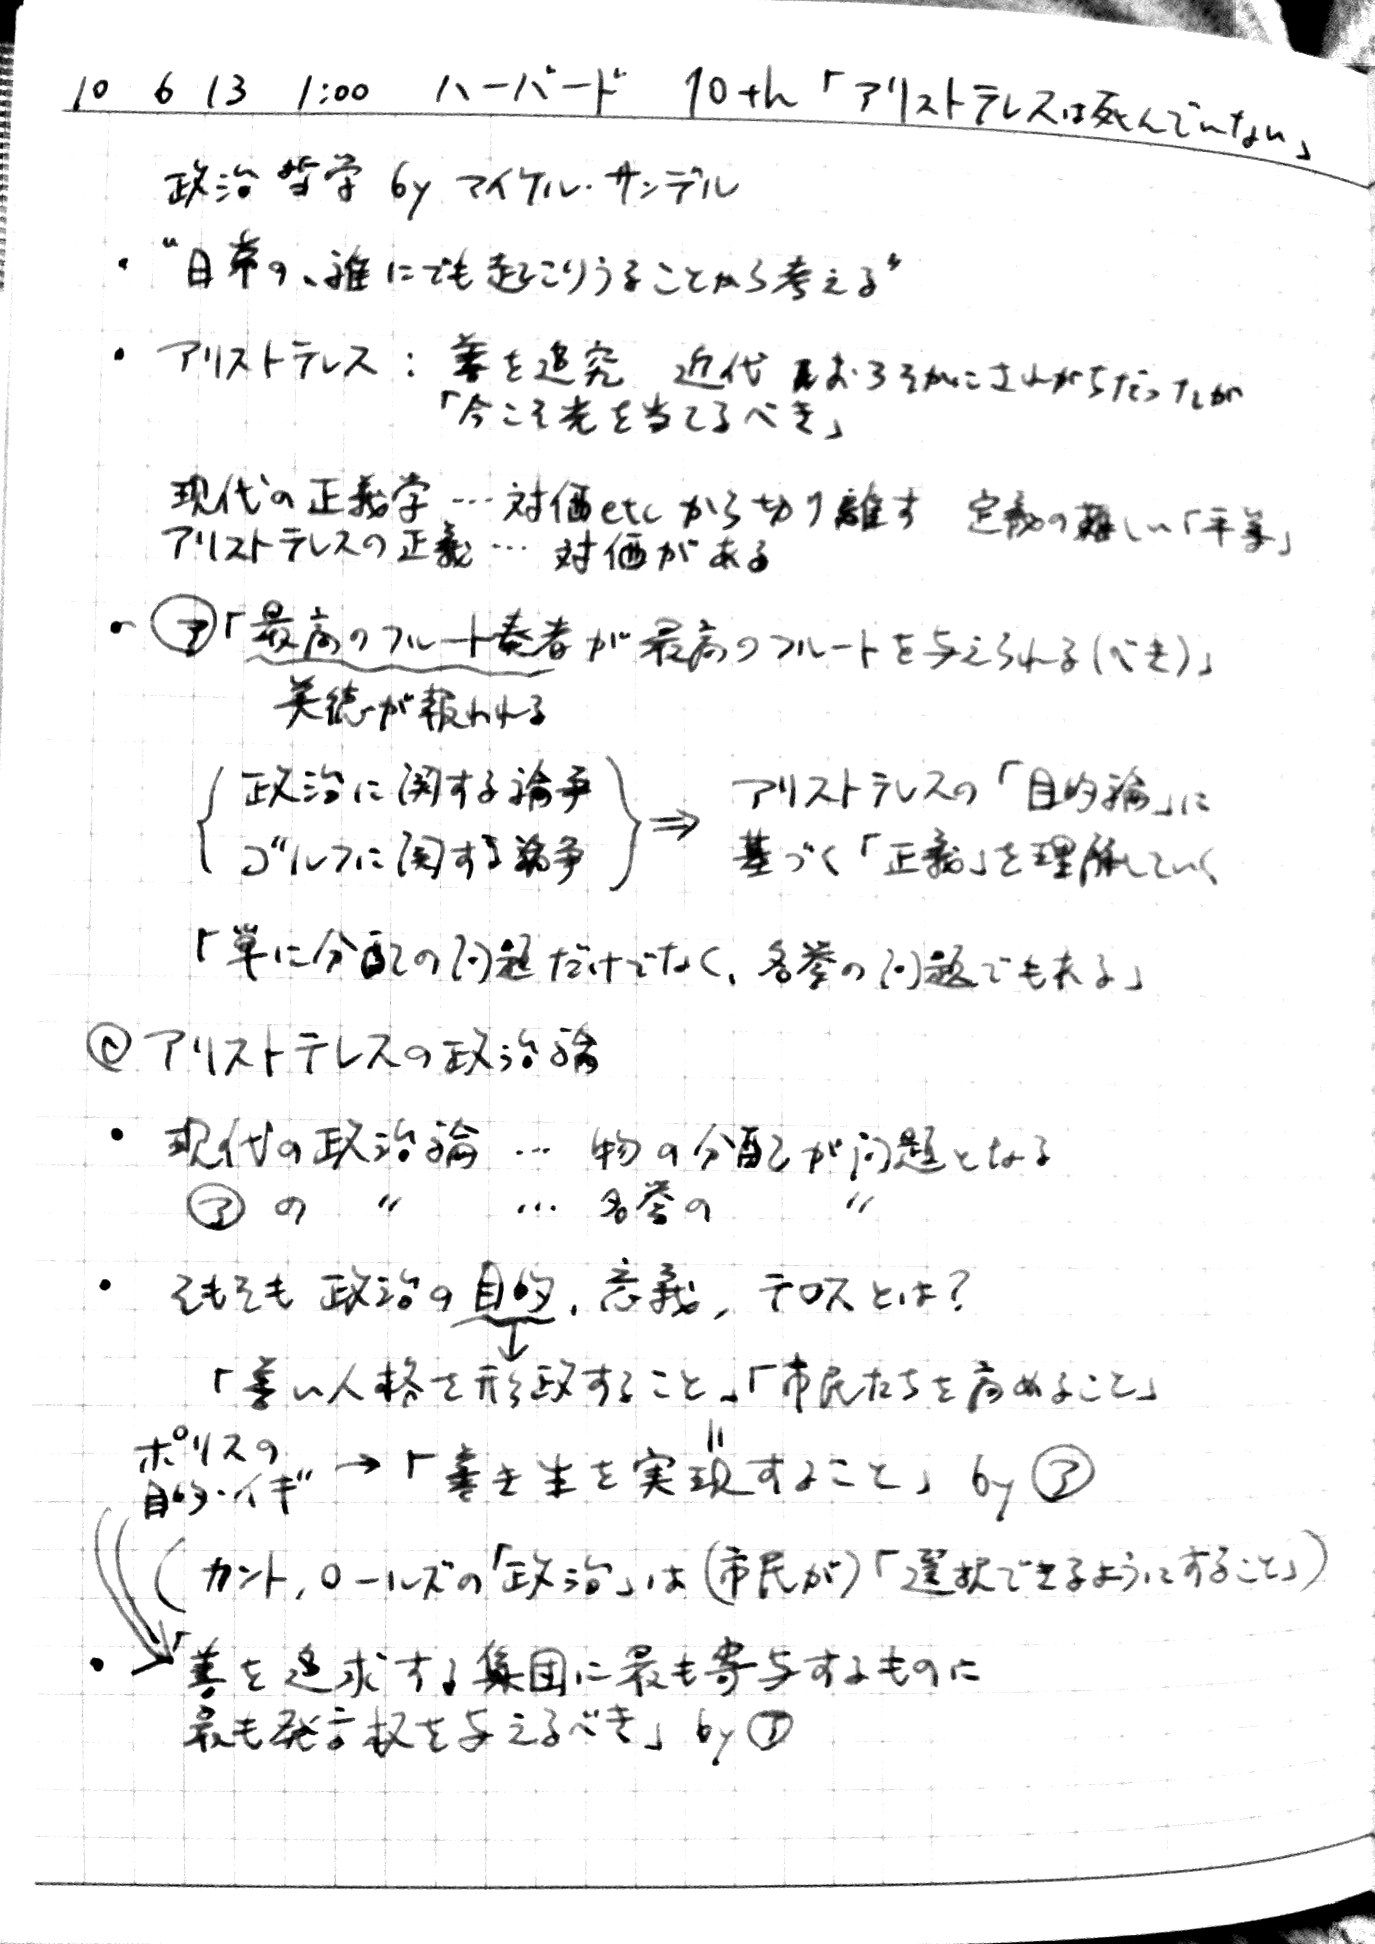 10 6 13 1:00 ハーバード 10th「アリストテレスは死んでいない」
政治哲学 by マイケル・サンデル
・"日常の、誰にでも起こりうることから考える"
・アリストテレス：善を追究 近代 おろそかにされがちだったが
「今こそ光を当てるべき」
現代の正義学 … 対価etcから切り離す 定義の難しい「平等」
アリストテレスの正義 … 対価がある
・㋐「最高のフルート奏者が最高のフルートを与えられる(べき)」
美徳が報われる
政治に関する論争 ⇒ アリストテレスの「目的論」に
ゴルフに関する論争 基づく「正義」を理解していく
「単に分配の問題だけでなく、名誉の問題でもある」
アリストテレスの政治論
・現代の政治論 … 物の分配が問題となる
㋐の 〃 … 名誉の 〃
・そもそも政治の目的、意義、テロスとは？
↓
「善い人格を形成すること」「市民たちを高めること」
〃
ポリスの
目的・イギ → 「善き生を実現すること」 by ㋐
(カント、ロールズの「政治」は(市民が)「選択できるようにすること」)
・「善を追求する集団に最も寄与するものに
最も発言権を与えるべき」 by ㋐